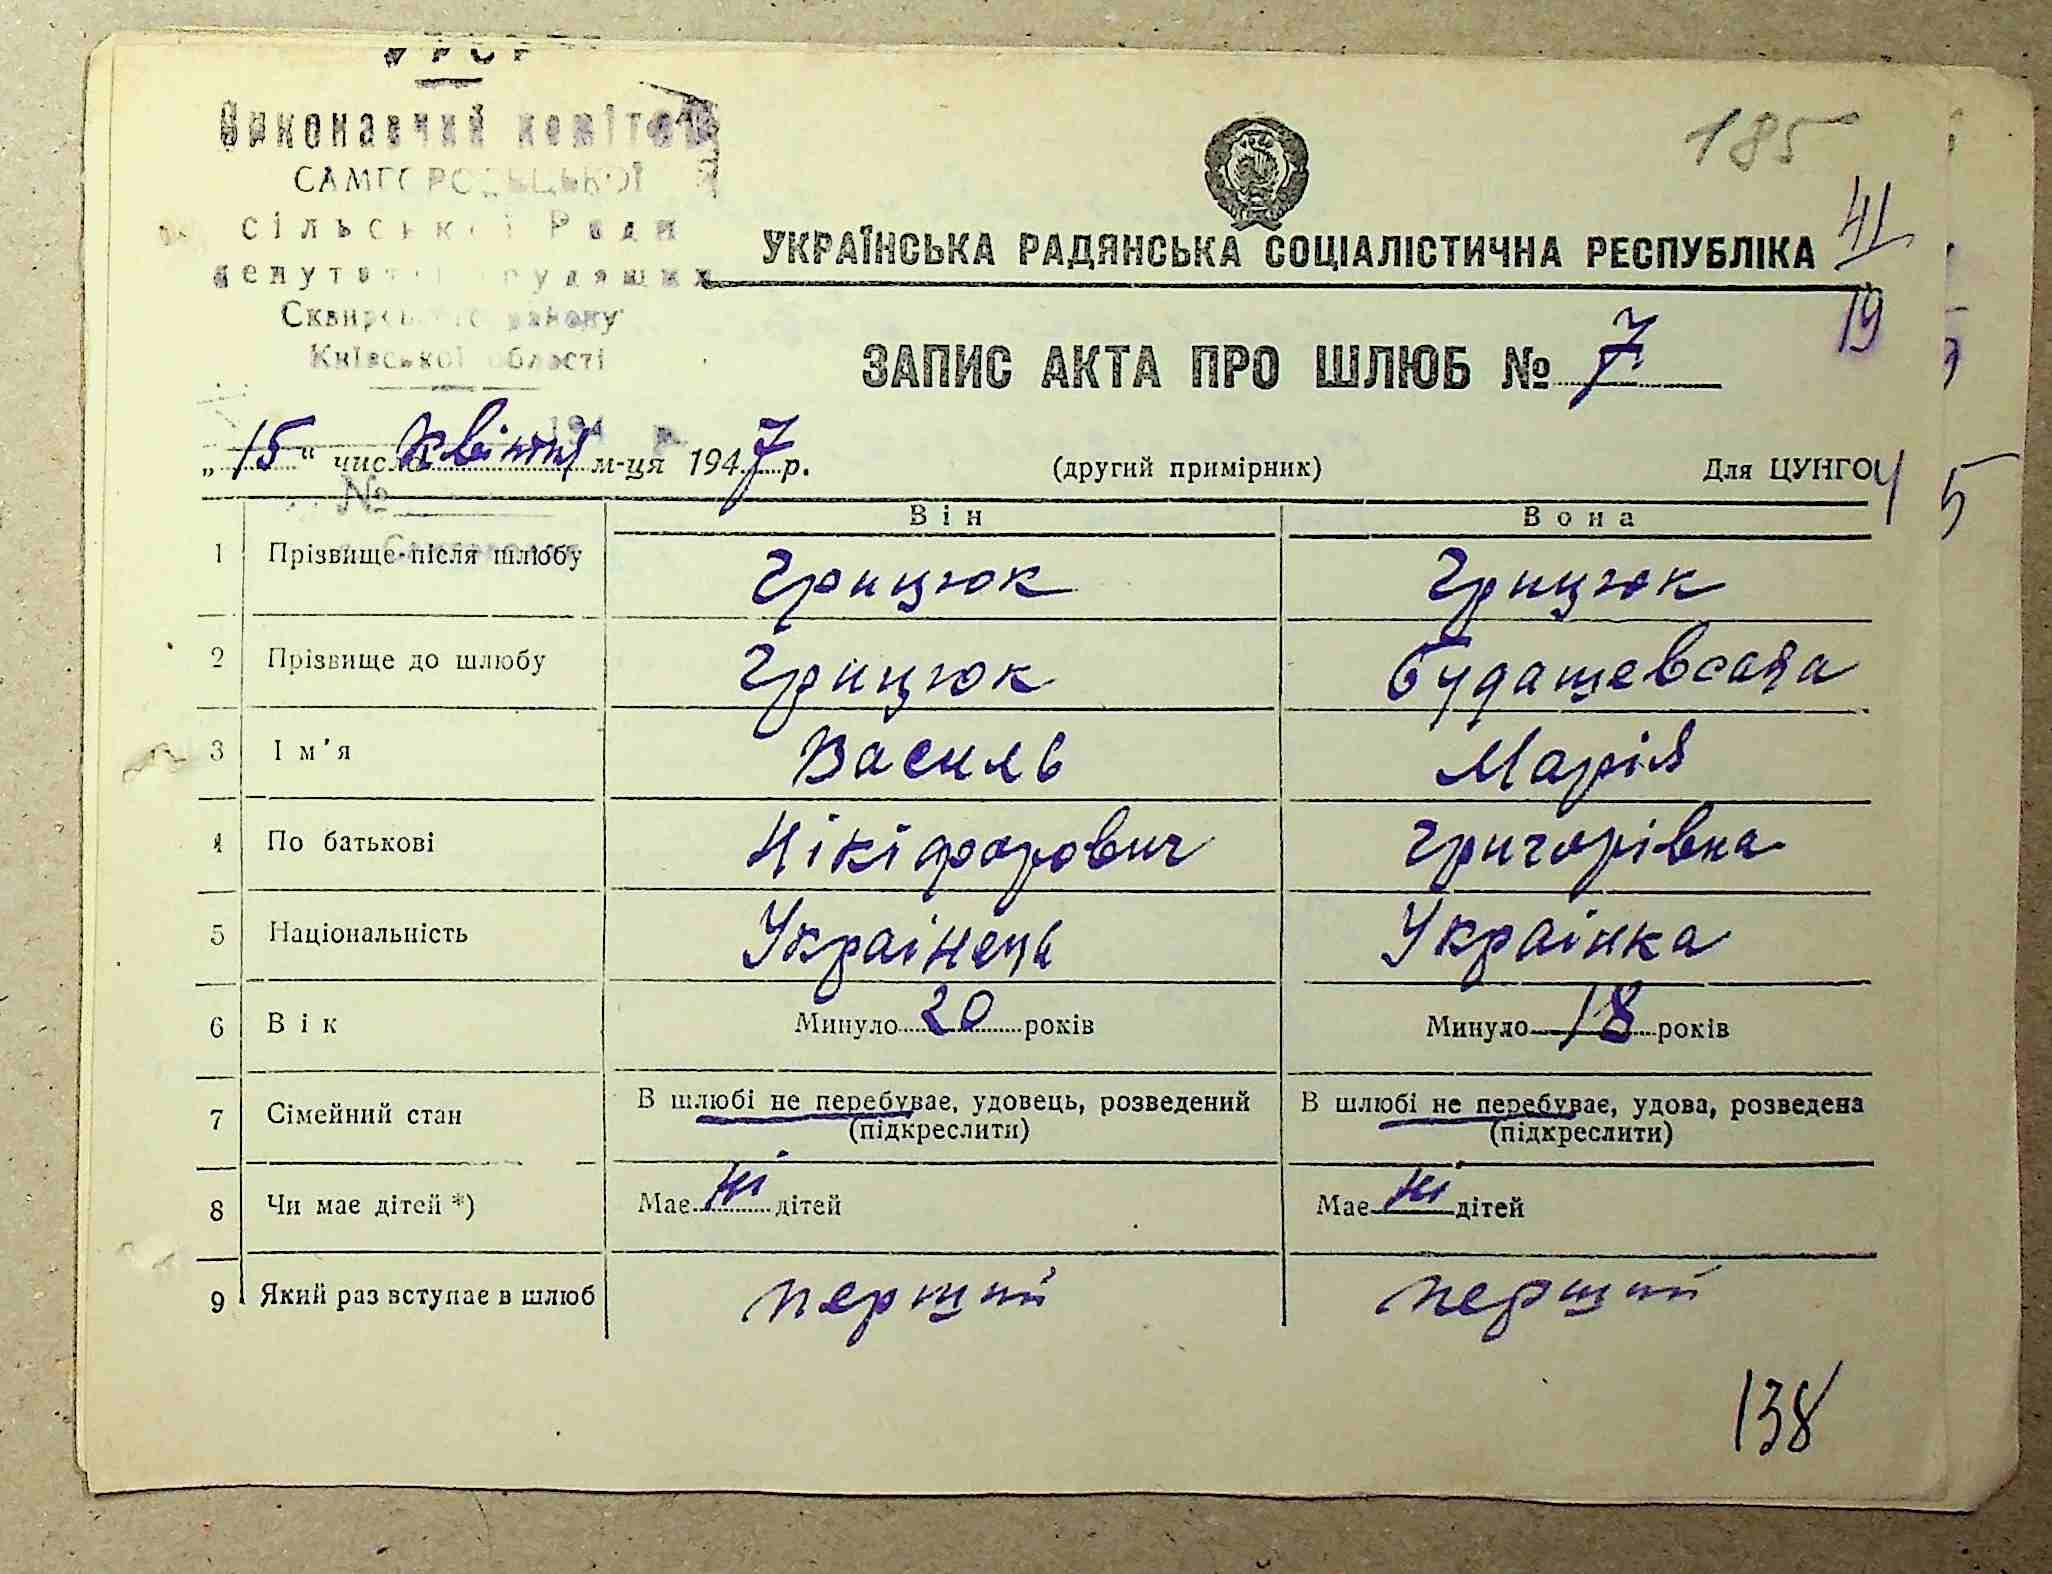 УРСР
Виконавчий комітет
САМГОРОДЬЦЬКОЇ
сільської Ради
депутатів трудящих
Сквирського району
Київської області
194 р.
№
185
41
19
УКРАЇНСЬКА РАДЯНСЬКА СОЦІАЛІСТИЧНА РЕСПУБЛІКА
ЗАПИС АКТА ПРО ШЛЮБ № 7
„15" число квітня м-ця 1947 р. (другий примірник) Для ЦУНГО 4 5
Він Вона
1 Прізвище після шлюбу Грицюк Грицюк
2 Прізвище до шлюбу Грицюк
3 Ім'я Василь Марія
4 По батькові Нікіфорович Григорівна
5 Національність Украінець Украінка
6 Вік Минуло 20 років Минуло 18 років
7 Сімейний стан В шлюбі не перебуває, удовець, розведений В шлюбі не перебуває, удова, розведена
(підкреслити) (підкреслити)
8 Чи має дітей *) Має ні дітей Має ні дітей
9 Який раз вступає в шлюб перший перший
138